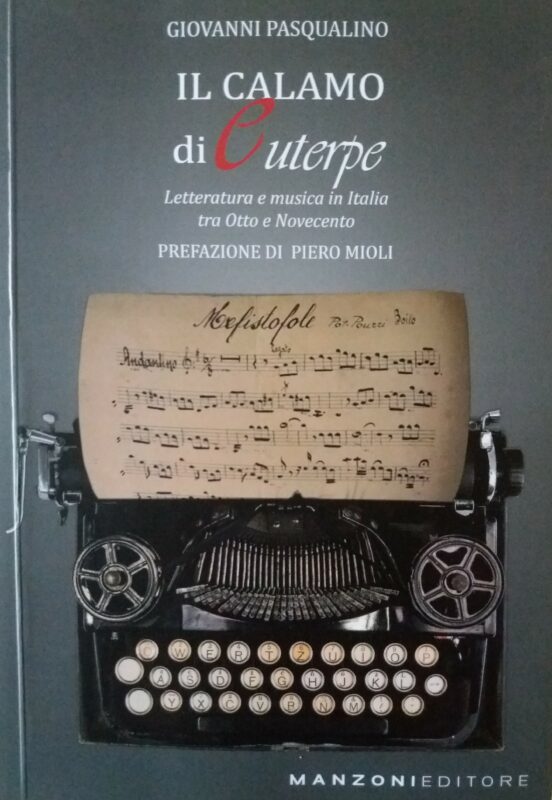 GIOVANNI PASQUALINO
IL CALAMO
di Euterpe
Letteratura e musica in Italia
tra Otto e Novecento
PREFAZIONE DI PIERO MIOLI
Mefistofole Boito
Andantino
W E R T Z U I O P
A S D F G H J K L
Y X C V B N M
MANZONIEDITORE